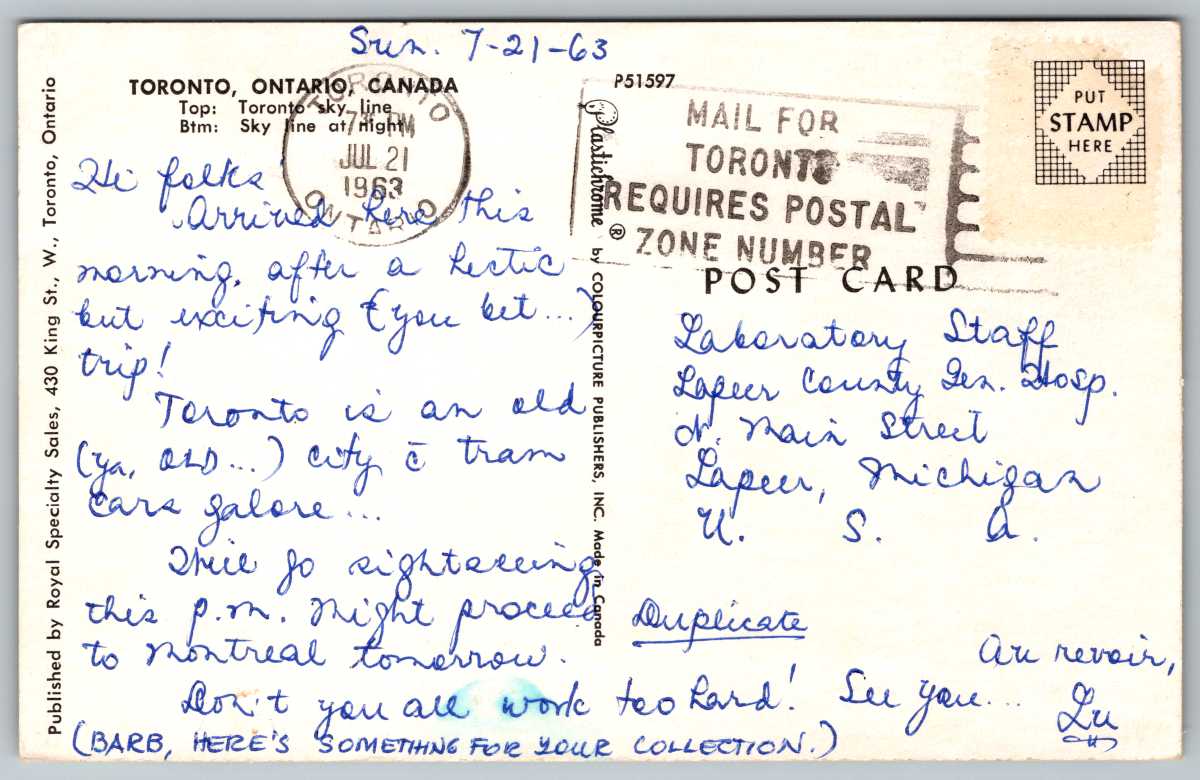 Sun. 7-21-63
TORONTO, ONTARIO, CANADA
Top: Toronto sky line
Btm: Sky line at night
P51597
TORONTO
PM
JUL 21
1963
ONTARIO
MAIL FOR
TORONTO
REQUIRES POSTAL
ZONE NUMBER
PUT
STAMP
HERE
POST CARD
Published by Royal Specialty Sales, 430 King St., W., Toronto, Ontario
Plastichrome ® by COLOURPICTURE PUBLISHERS, INC. Made in Canada
Hi folks
Arrived here this
morning, after a hectic
but exciting (you bet...)
trip!
Toronto is an old
(ya, OLD...) city c̄ tram
cars galore...
Will go sightseeing
this p.m. Might proceed
to Montreal tomorrow.
Don't you all work too hard! See you...
(BARB, HERE'S SOMETHING FOR YOUR COLLECTION.)
Laboratory Staff
Lapeer County Gen. Hosp.
N. Main Street
Lapeer, Michigan
U. S. A.
Duplicate
Au revoir,
Lu